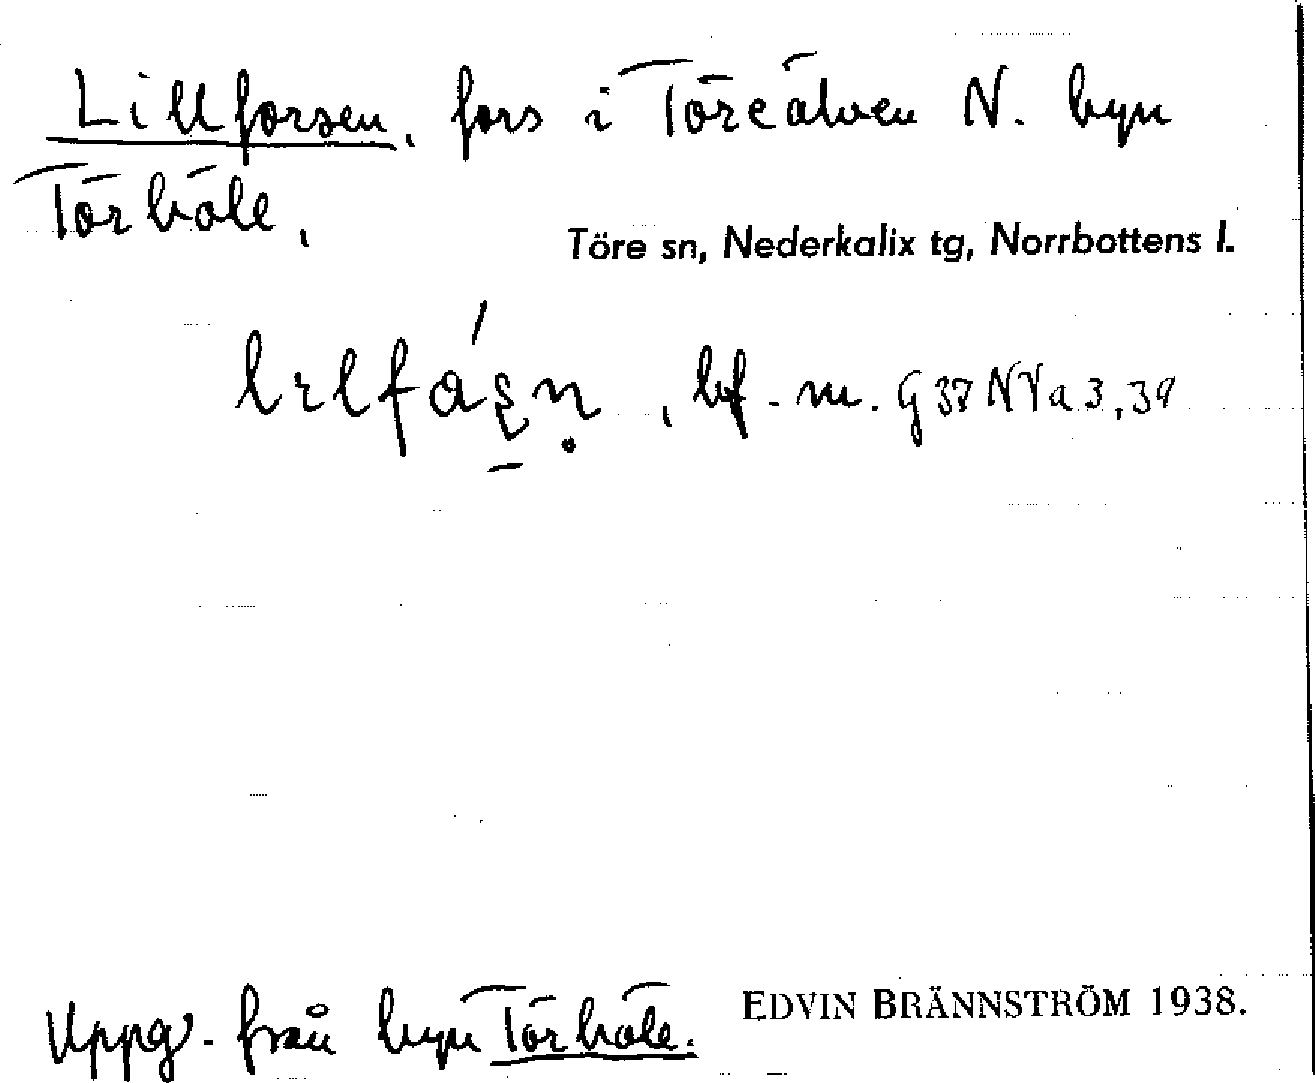 Lillforsen, fors i Töreälven N. byn
Törböle,
Töre sn, Nederkalix tg, Norrbottens l.
bf. m. G 37 NVa 3,39
Uppg. från byn Törböle.
EDVIN BRÄNNSTRÖM 1938.